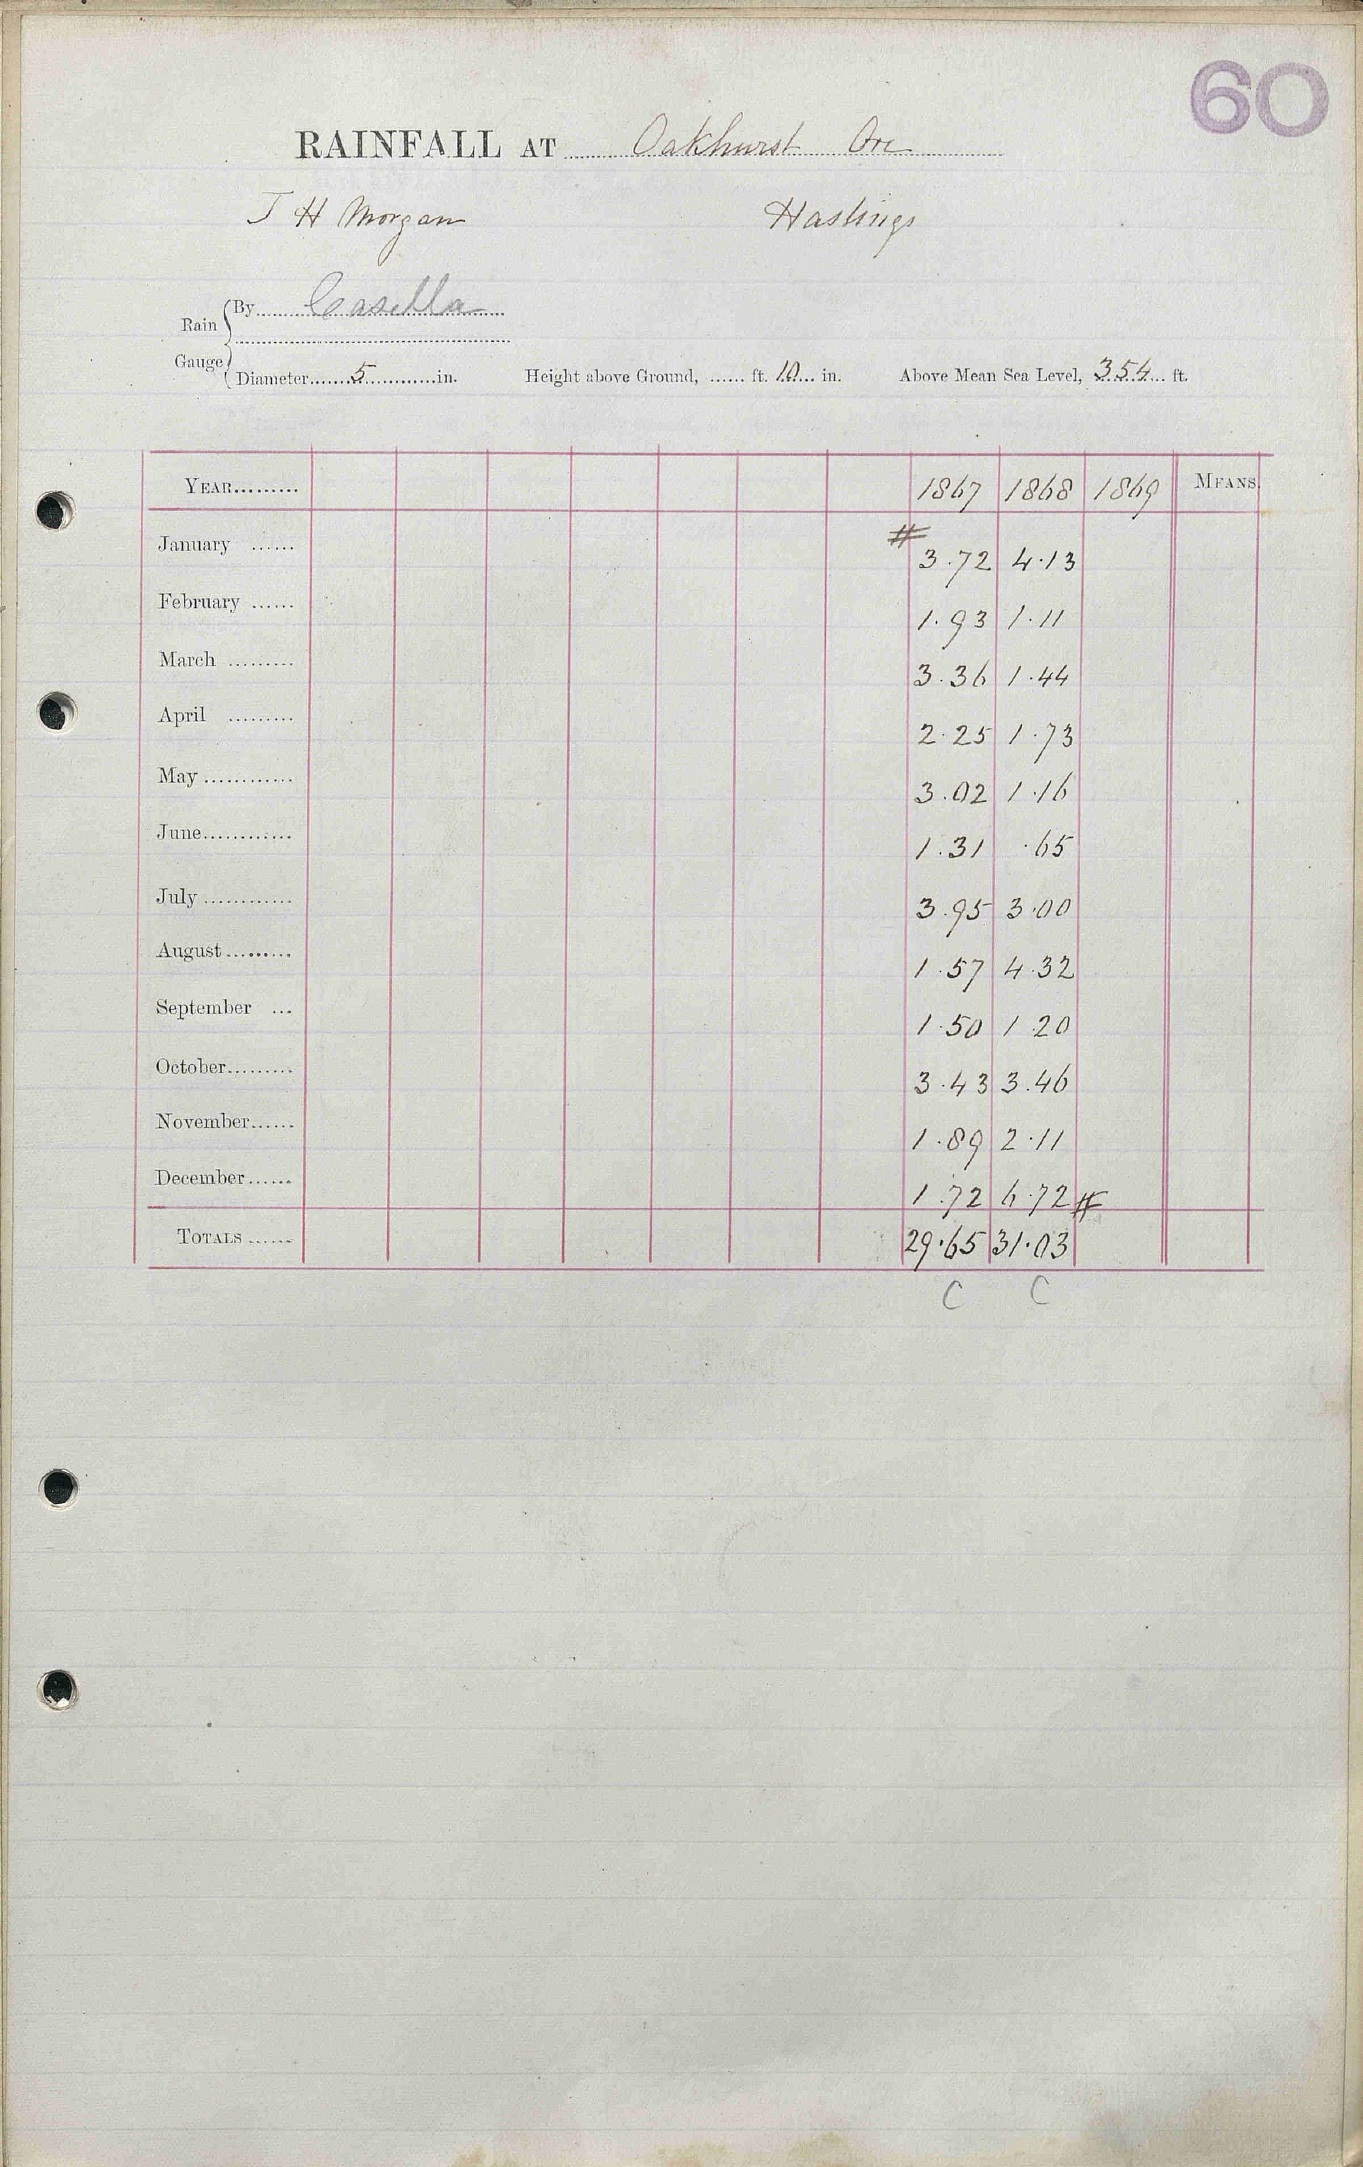 60
RAINFALL AT Oakhurst Ore
J H Morgan Hastings
Rain Gauge
By Casella
Diameter 5 in. Height above Ground, ...... ft. 10 in. Above Mean Sea Level, 354 ft.
YEAR......... 1867 1868 1869 MEANS.
January ...... # 3.72 4.13
February ...... 1.93 1.11
March ......... 3.36 1.44
April ......... 2.25 1.73
May ............ 3.02 1.16
June............ 1.31 .65
July ............ 3.95 3.00
August......... 1.57 4.32
September ... 1.50 1.20
October......... 3.43 3.46
November...... 1.89 2.11
December...... 1.72 6.72 #
TOTALS ...... 29.65 31.03
C C